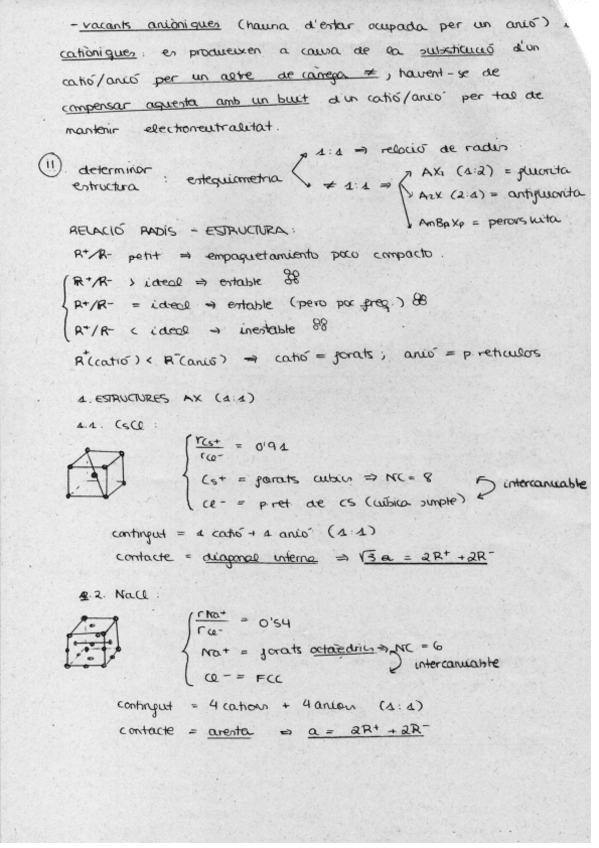 - vacants aniòniques (hauria d'estar ocupada per un anió) i
catiòniques: es produeixen a causa de la substitució d'un
catió/anió per un altre de càrrega ≠, havent-se de
compensar aquesta amb un buit d'un catió/anió per tal de
mantenir electroneutralitat.
11 determinar estructura : estequiometria
1:1 ⇒ relació de radis
≠ 1:1 ⇒
AX₂ (1:2) = fluorita
A₂X (2:1) = antifluorita
AmBnXp = perovskita
RELACIÓ RADIS - ESTRUCTURA:
R+/R- petit ⇒ empaquetamiento poco compacto.
R+/R- > ideal ⇒ estable
R+/R- = ideal → estable (pero poc freq.)
R+/R- < ideal → inestable
R+(catió) < R-(anió) ⇒ catió = forats; anió = p. reticulos
1. ESTRUCTURES AX (1:1)
1.1. CsCl:
rCs+/rCl- = 0'91
Cs+ = forats cúbics ⇒ NC = 8
Cl- = p.ret de CS (cúbica simple)
intercanviable
contingut = 1 catió + 1 anió (1:1)
contacte = diagonal interna ⇒ √3 a = 2R+ + 2R-
1.2. NaCl:
rNa+/rCl- = 0'54
Na+ = forats octaèdrics ⇒ NC = 6
intercanviable
Cl- = FCC
contingut = 4 cations + 4 anions (1:1)
contacte = aresta ⇒ a = 2R+ + 2R-